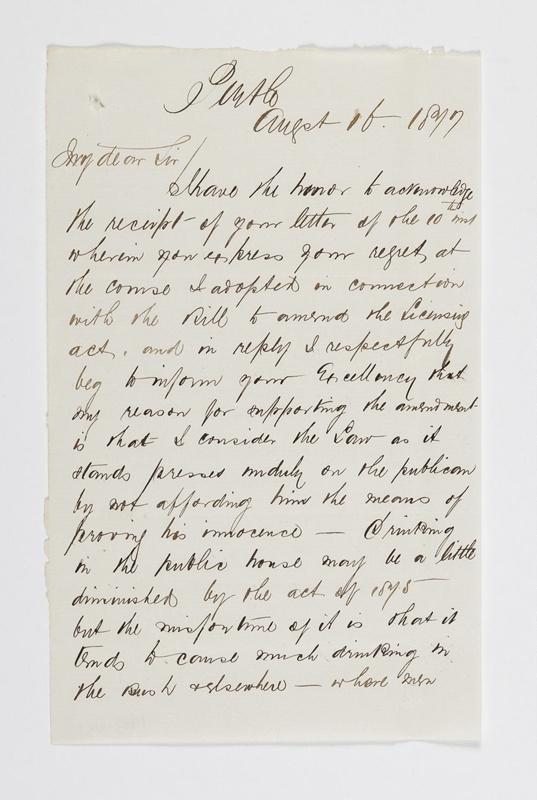 Perth
Augst 16 - 1877
My dear Sir/
I have the honor to acknowledge
the receipt of your letter of the 10th inst
wherein you express your regret at
the course I adopted in connection
with the Bill to amend the Licensing
act. and in reply I respectfully
beg to inform your Excellency that
my reason for supporting the amendment
is that I consider the Law as it
stands presses unduly on the publican
by not affording him the means of
proving his innocence — Drinking
in the public house may be a little
diminished by the act of 1875
but the misfortune of it is that it
tends to cause much drinking in
the bush & elsewhere — where men